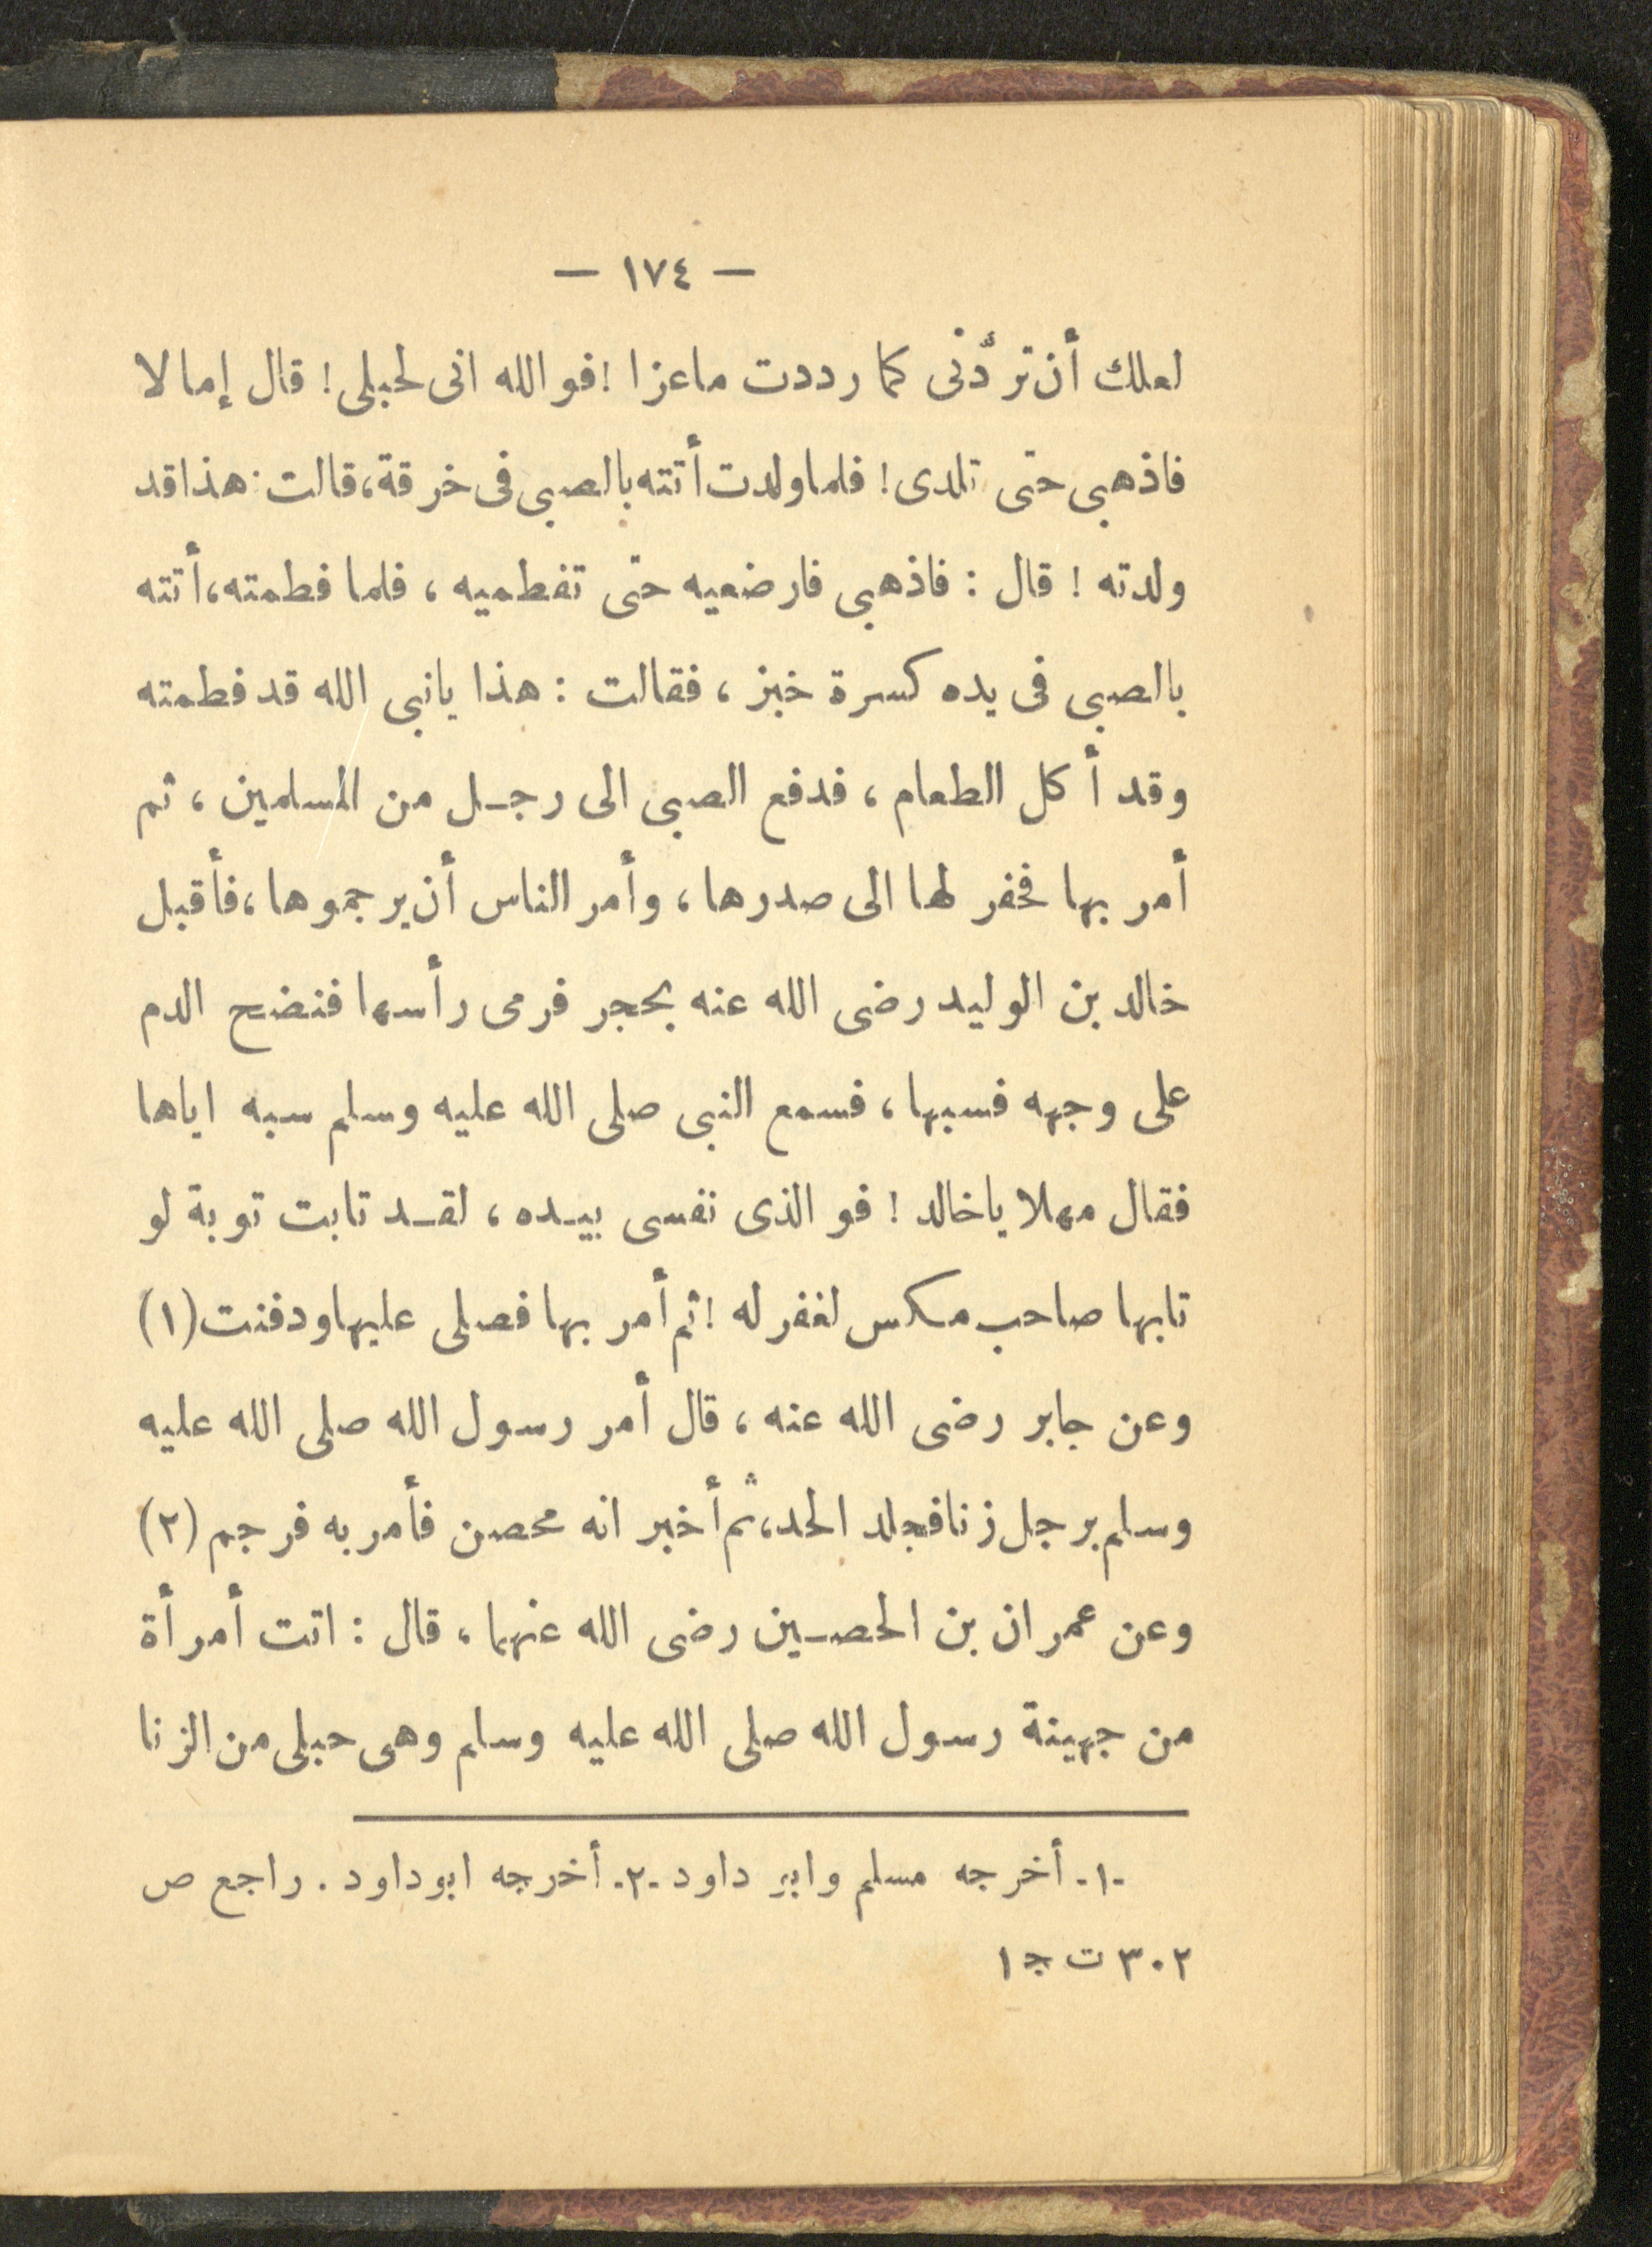 — ١٧٤ —
لعلك أن تردّنى كما رددت ماعزا ! فو الله انى لحبلى ! قال إما لا
فاذهبى حتى تلدى ! فلما ولدت أتته بالصبى فى خرقة، قالت : هذا قد
ولدته ! قال : فاذهبى فارضعيه حتى تفطميه ، فلما فطمته، أتته
بالصبى فى يده كسرة خبز ، فقالت : هذا يانبى الله قد فطمته
وقد أكل الطعام ، فدفع الصبى الى رجل من المسلمين ، ثم
أمر بها فحفر لها الى صدرها ، وأمر الناس أن يرجموها ، فأقبل
خالد بن الوليد رضى الله عنه بحجر فرمى رأسها فنضح الدم
على وجهه فسبها ، فسمع النبى صلى الله عليه وسلم سبه اياها
فقال مهلا ياخالد ! فو الذى نفسى بيده ، لقد تابت توبة لو
تابها صاحب مكس لغفر له ! ثم أمر بها فصلى عليها ودفنت (١)
وعن جابر رضى الله عنه ، قال أمر رسول الله صلى الله عليه
وسلم برجل زنا فجلد الحد، ثم أخبر انه محصن فأمر به فرجم (٢)
وعن عمران بن الحصين رضى الله عنهما ، قال : اتت أمرأة
من جهينة رسول الله صلى الله عليه وسلم وهى حبلى من الزنا
-١- أخرجه مسلم وابو داود -٢- أخرجه ابوداود . راجع ص
٣٠٢ ت ج ١